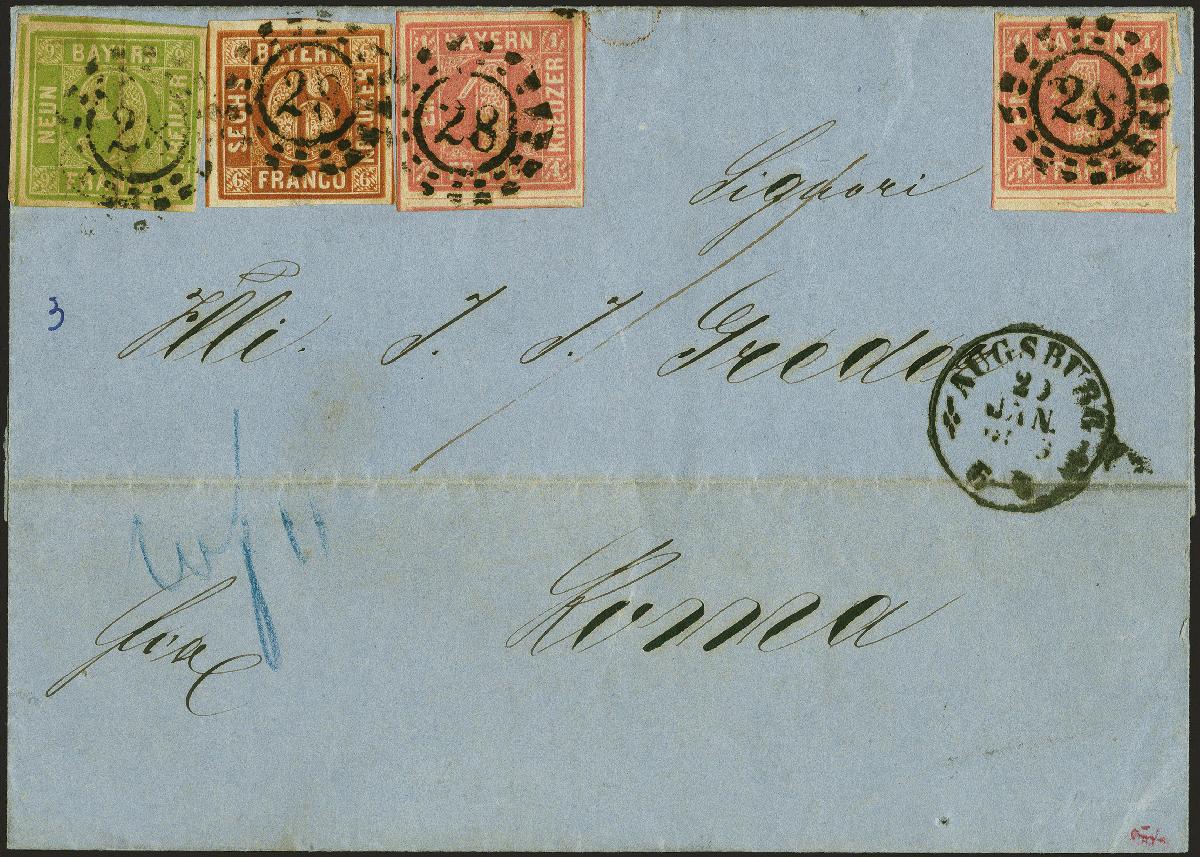 9 BAYERN NEUN KREUZER FRANCO
28
6 BAYERN SECHS KREUZER FRANCO 6 6
28
1 BAYERN 1 KREUZER 1
28
1 BAYERN 1
28
Signori
3
Flli. J. J. Freda
AUGSBURG
JAN.
Roma